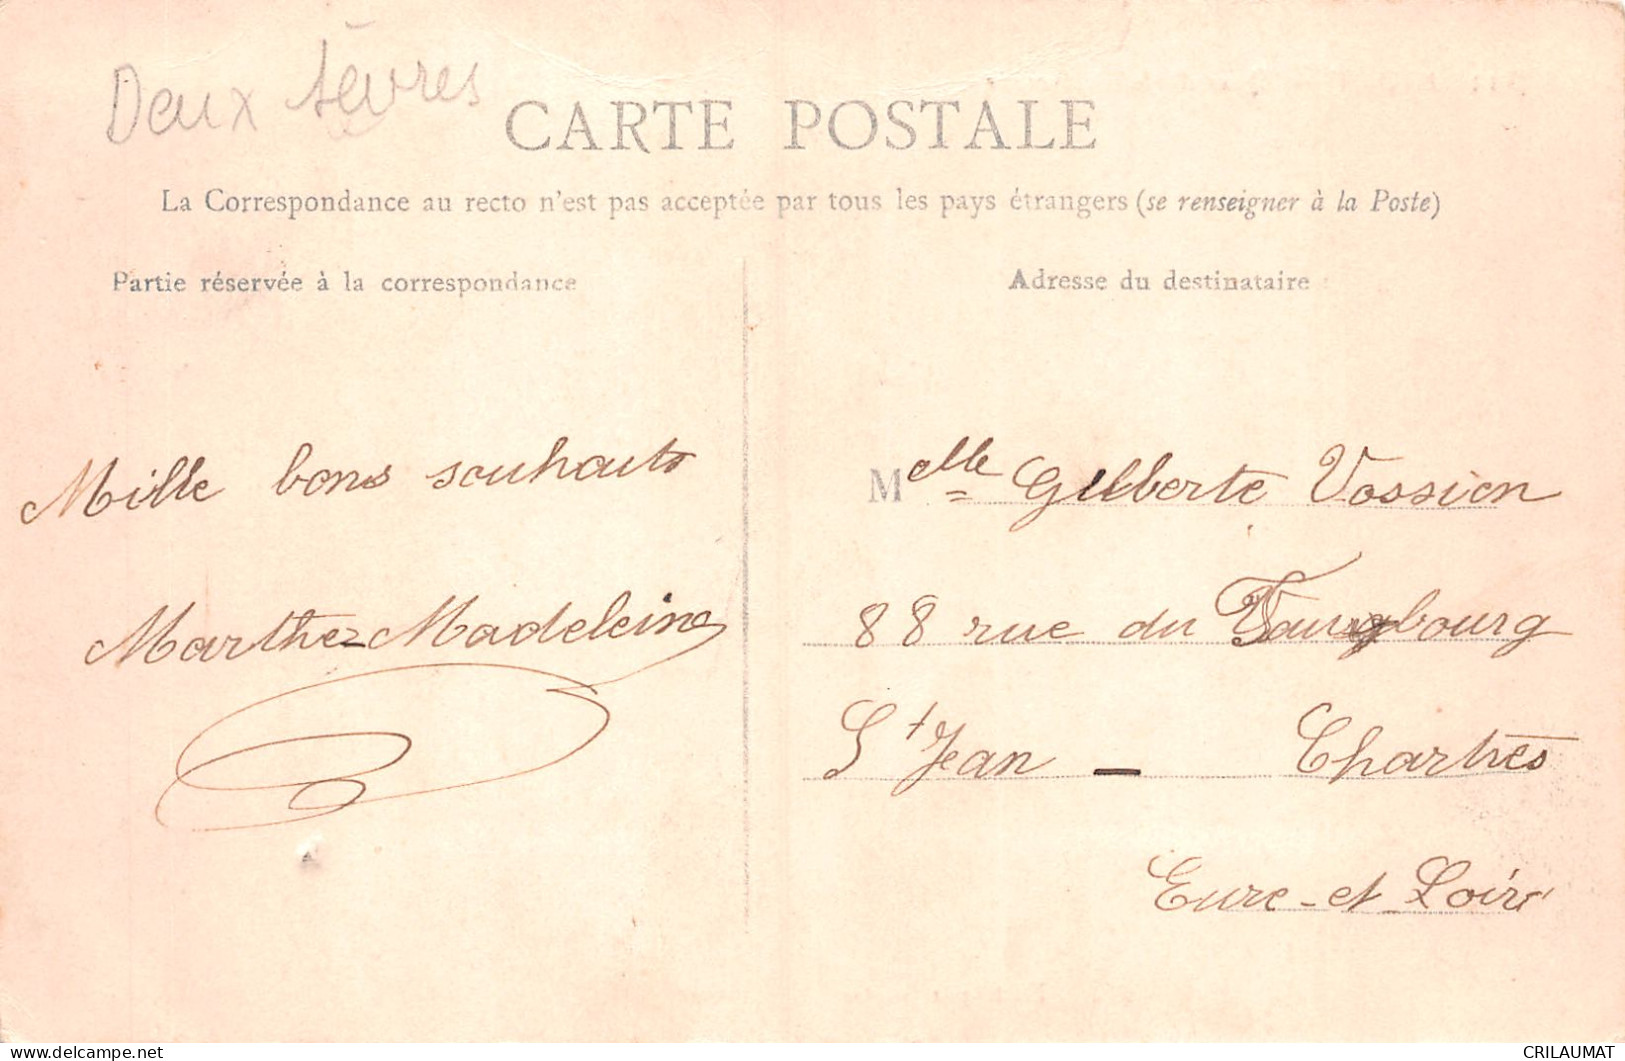 Deux sèvres
CARTE POSTALE
La Correspondance au recto n'est pas acceptée par tous les pays étrangers (se renseigner à la Poste)
Partie réservée à la correspondance
Mille bons souhaits
Marthe-Madeleine
Adresse du destinataire
Melle Gilberte Vossion
88 rue du Faugbourg
St Jean - Chartres
Eure-et Loire
CRILAUMAT